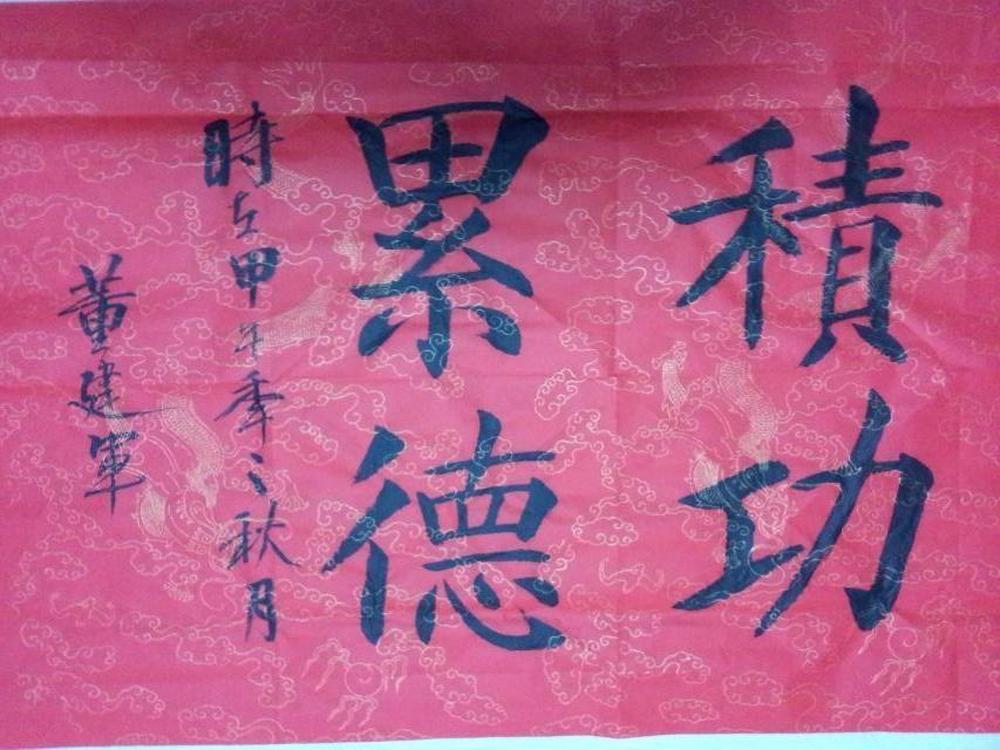 積功
累德
時在甲午季之秋月
董建軍